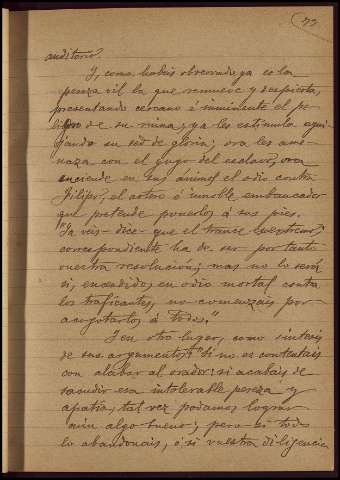 77
auditorio?
Y, como habéis observado ya es la
pereza vil la que remueve y despierta,
presentando cercano é inminente el pe-
ligro de su ruina; ya les estimula agui-
jando su sed de gloria; ora les ame-
naza con el yugo del esclavo, ora
enciende en sus ánimos el odio contra
Filipo, el astero é innoble embaucador
que pretende ponerlos á sus pies.
"Ya veis - dice - que el trance es extremo;
correspondiente ha de ser por tanto
vuestra resolución; mas no lo será
si, encendidos en odio mortal contra
los traficantes, no comenzáis por
acogotarlos á todos."
Y en otro lugar, como síntesis
de sus argumentos: "Si no os contentáis
con alabar al orador: si acabáis de
sacudir esa intolerable pereza y
apatía, tal vez podamos lograr
aún algo bueno; pero si todo
lo abandonáis, ó si vuestra diligencia